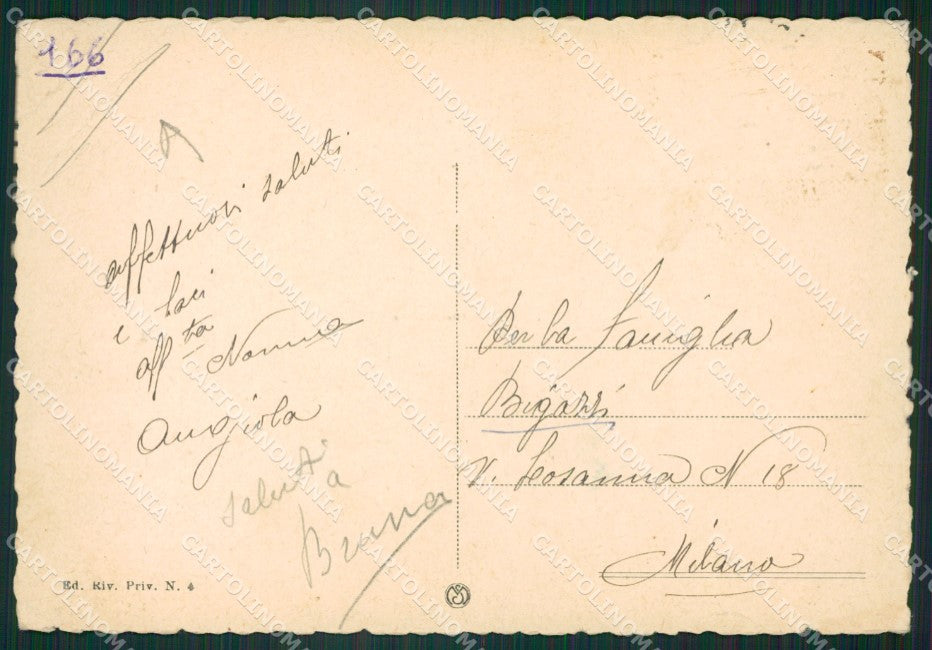 166
affettuosi saluti
e baci
aff ta Nonna
Angiola
saluti a
Bruna
Per la Famiglia
Bigazzi
V. Losanna N 18
Milano
Ed. Riv. Priv. N. 4
CARTOLINOMANIA